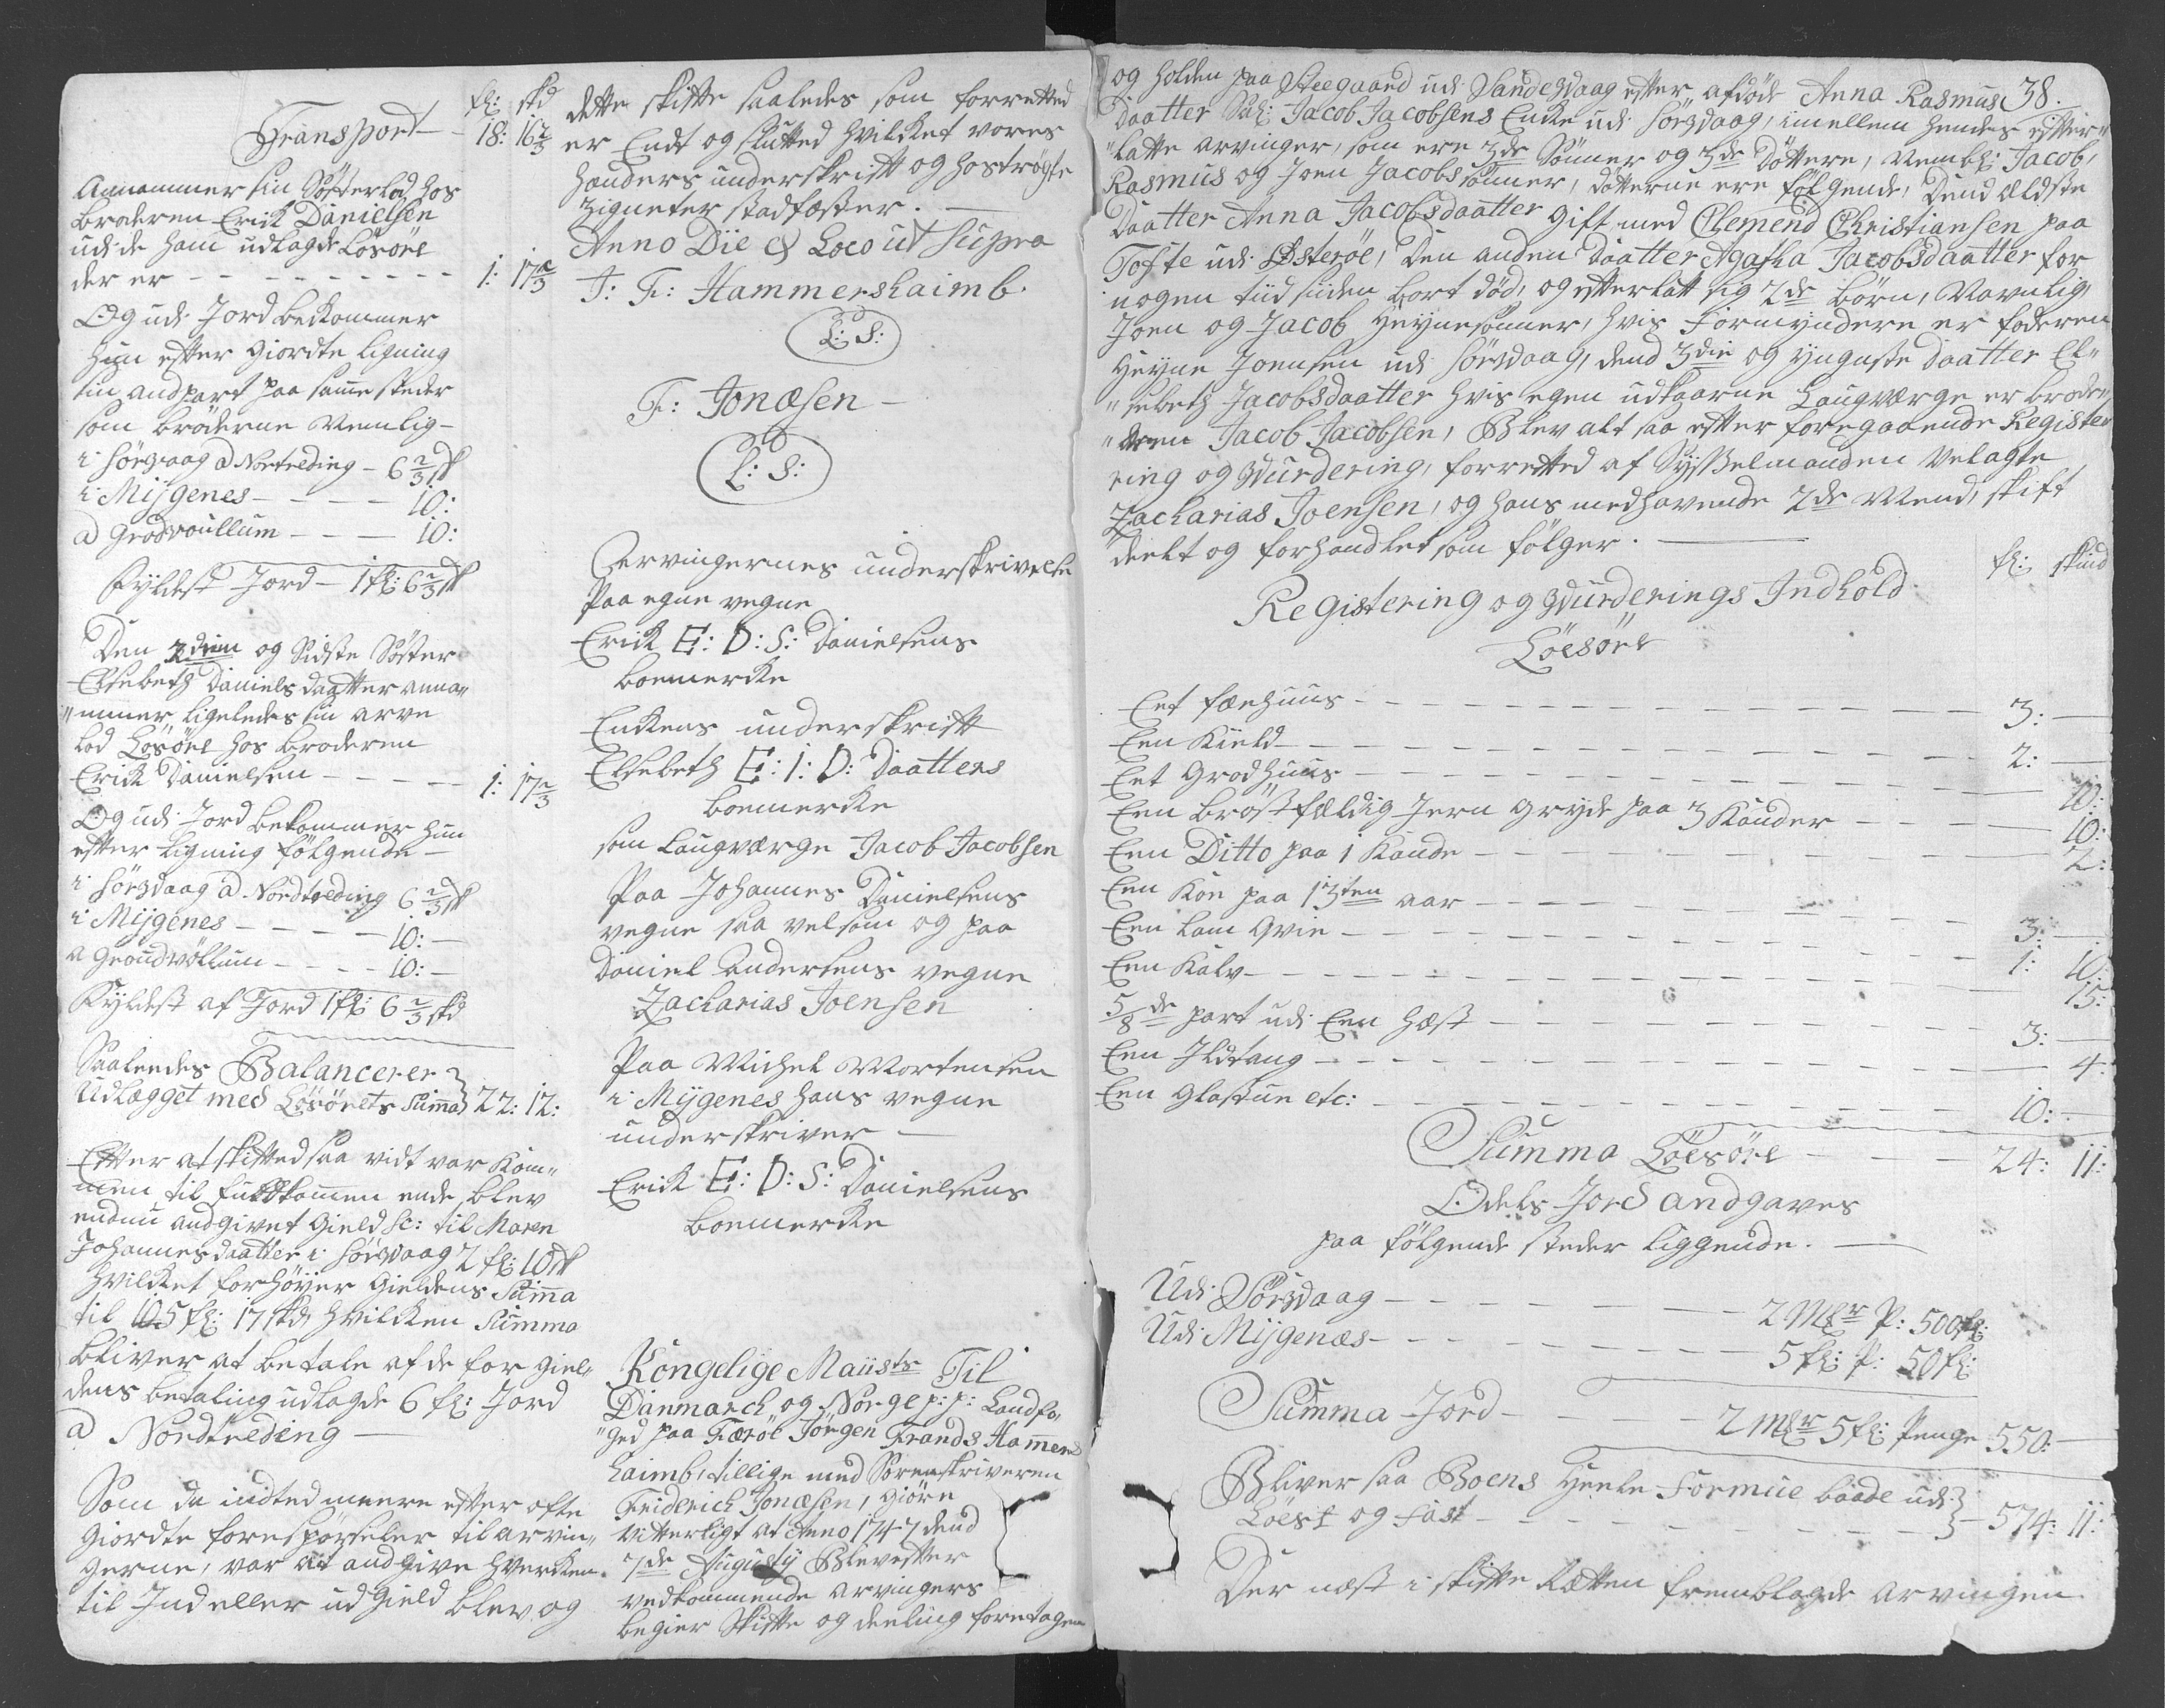 fl: skd
Transport - 18: 16 2/3
Annammer sin Søsterlod hos
Broderen Erick Danielsen
udi de ham udlagde Løsøre
der er - - - - - - - - - 1: 17 2/3
Og udi Jord bekommer
hun efter giordte ligning
sin andpart paa samme steder
som brøderne Nemlig -
i Sørvaag a Nortreding - 6 2/3 sk
i Mijgenes - - - - 10:
a Grodvoullum - - - 10:
Fyldest Jord - 1 fl: 6 2/3 sk
Den 2den og Sidste Søster
Elsebeth Daniels daatter anna„
„mmer ligeledes sin arve
lod Løsøre hos broderen
Erick Danielsen - - - - - 1: 17 2/3
Og udi Jord bekommer hun
efter ligning følgende -
i Sørvaag a Nordtreding 6 2/3 sk
i Mijgenes - - - - 10: -
a Groudvøllum - - - - 10: -
Fyldest af Jord 1 fl: 6 2/3 skd
Saaleedes Balancerer
Udlægget med Løsørets Suma } 22: 12:
Efter at skiftet saa vidt var Kom„
men til fuldkommen ende, blev
endnu andgivet Gield sc: til Maren
Johannesdaatter i Sørvaag 2 fl: 10 sk
hvilcket forhøyer Gieldens Suma
til 105 fl: 17 skd, hvilcken Summa
bliver at betale af de for Giel„
dens betaling udlagde 6 fl: Jord
a Nordtreding -
Som da indted meere efter ofte
giordte forespørseler til arvin„
gerne, var at andgive hvercken
til Ind eller ud Gield blev og
dette skifte saaledes som forretted
er Endt og sluttet hvilcket vores
hænders underskrift og hostrøgte
Zigneter stadfæster. -
Anno Die & Loco ut Supra
J: F: Hammershaimb.
L: S:
F: Jonæsen -
L: S:
Arvingernes underskrivelse
Paa egne vegne
Erick E: D: S: Danielsens
boemercke
Enckens underskrift
Elsebeth E: I: D: Daatters
boemercke
som laugværge Jacob Jacobsen
Paa Johannes Danielsens
vegne saa velsom og paa
Daniel Andersens vegne
Zacharias Joensen
Paa Michel Mortensen
i Mijgenes hans vegne
underskriver -
Erick E: D: S: Danielsens
boemercke
Kongelige Maiists Til
Danmarch og Norge p: p: Landfo„
„ged paa Færøe Jørgen Frands Hammers
haimb, tillige med Sorenskriveren
Friderich Jonæsen, Giøre
vitterligt at Anno 1747 dend
7de Augusty Blev efter
vedkommende arvingers
begier Skifte og deeling foretagen
38.
og holden paa Steegaard udi Sandesvaag efter afdøde Anna Rasmus
Daatter Sal: Jacob Jacobsens Encke udi Sørvaag, imellem hendes efter„
„latte arvinger, som ere 3de Sønner og 3de Døttere, Nembl: Jacob,
Rasmus og Joen Jacobssønner, døtterne ere følgende, Dend ældste
Daatter Anna Jacobsdaatter gift med Clemend Christiansen paa
Tofte udi Østerøe, Den anden Daatter Agatha Jacobsdaatter for
nogen tiid siiden bort død, og efterlatt sig 2de børn, Navnlig,
Joen og Jacob Heynesønner, hvis Formyndere er faderen
Heyne Joensen udi Sørvaag, dend 3die og yngste Daatter El„
„sebeth Jacobsdaatter hvis egen udkaarne Laugværge er brode„
„ren Jacob Jacobsen, Blev alt saa efter foregaaende Register
ring og Wurdering, forretted af Sysselmanden Velagte
Zacharias Joensen, og hans medhavende 2de Mend, skift
deelt og forhandlet som følger. -
fl: skind
Registering og Wurderings Indhold
Løesøre
Eet fæehuus - - - 3: -
Een Kield - - - 2: -
Eet Grodhuus - - - 10:
Een brøstfældig Jern gryde paa 3 Kander - - - 10:
Een Ditto paa 1 Kande - - - 2:
Een Koe paa 13ten aar - - - 3: -
Een lam Qvie - - - 1: 10:
Een Kalv - - - 15:
5/8de part udi Een hæst - - - 3: -
Een Ildtang - - - 4:
Een Glastue etc: - - - 10: -
Summa Løesøre - - - 24: 11:
Odels Jord andgaves
paa følgende steder liggende. -
Udi Sørvaag - - - 2 Mkr P: 500 fl:
Udi Mijgenæs - - - 5 fl: P: 50 fl:
Summa Jord - - - 2 Mkr 5 fl: Penge 550: -
Bliver saa Boens Heele Formue baade udi
Løest og Fast - - - } 574: 11:
Der næst i skifte Retten fremblagde arvingen